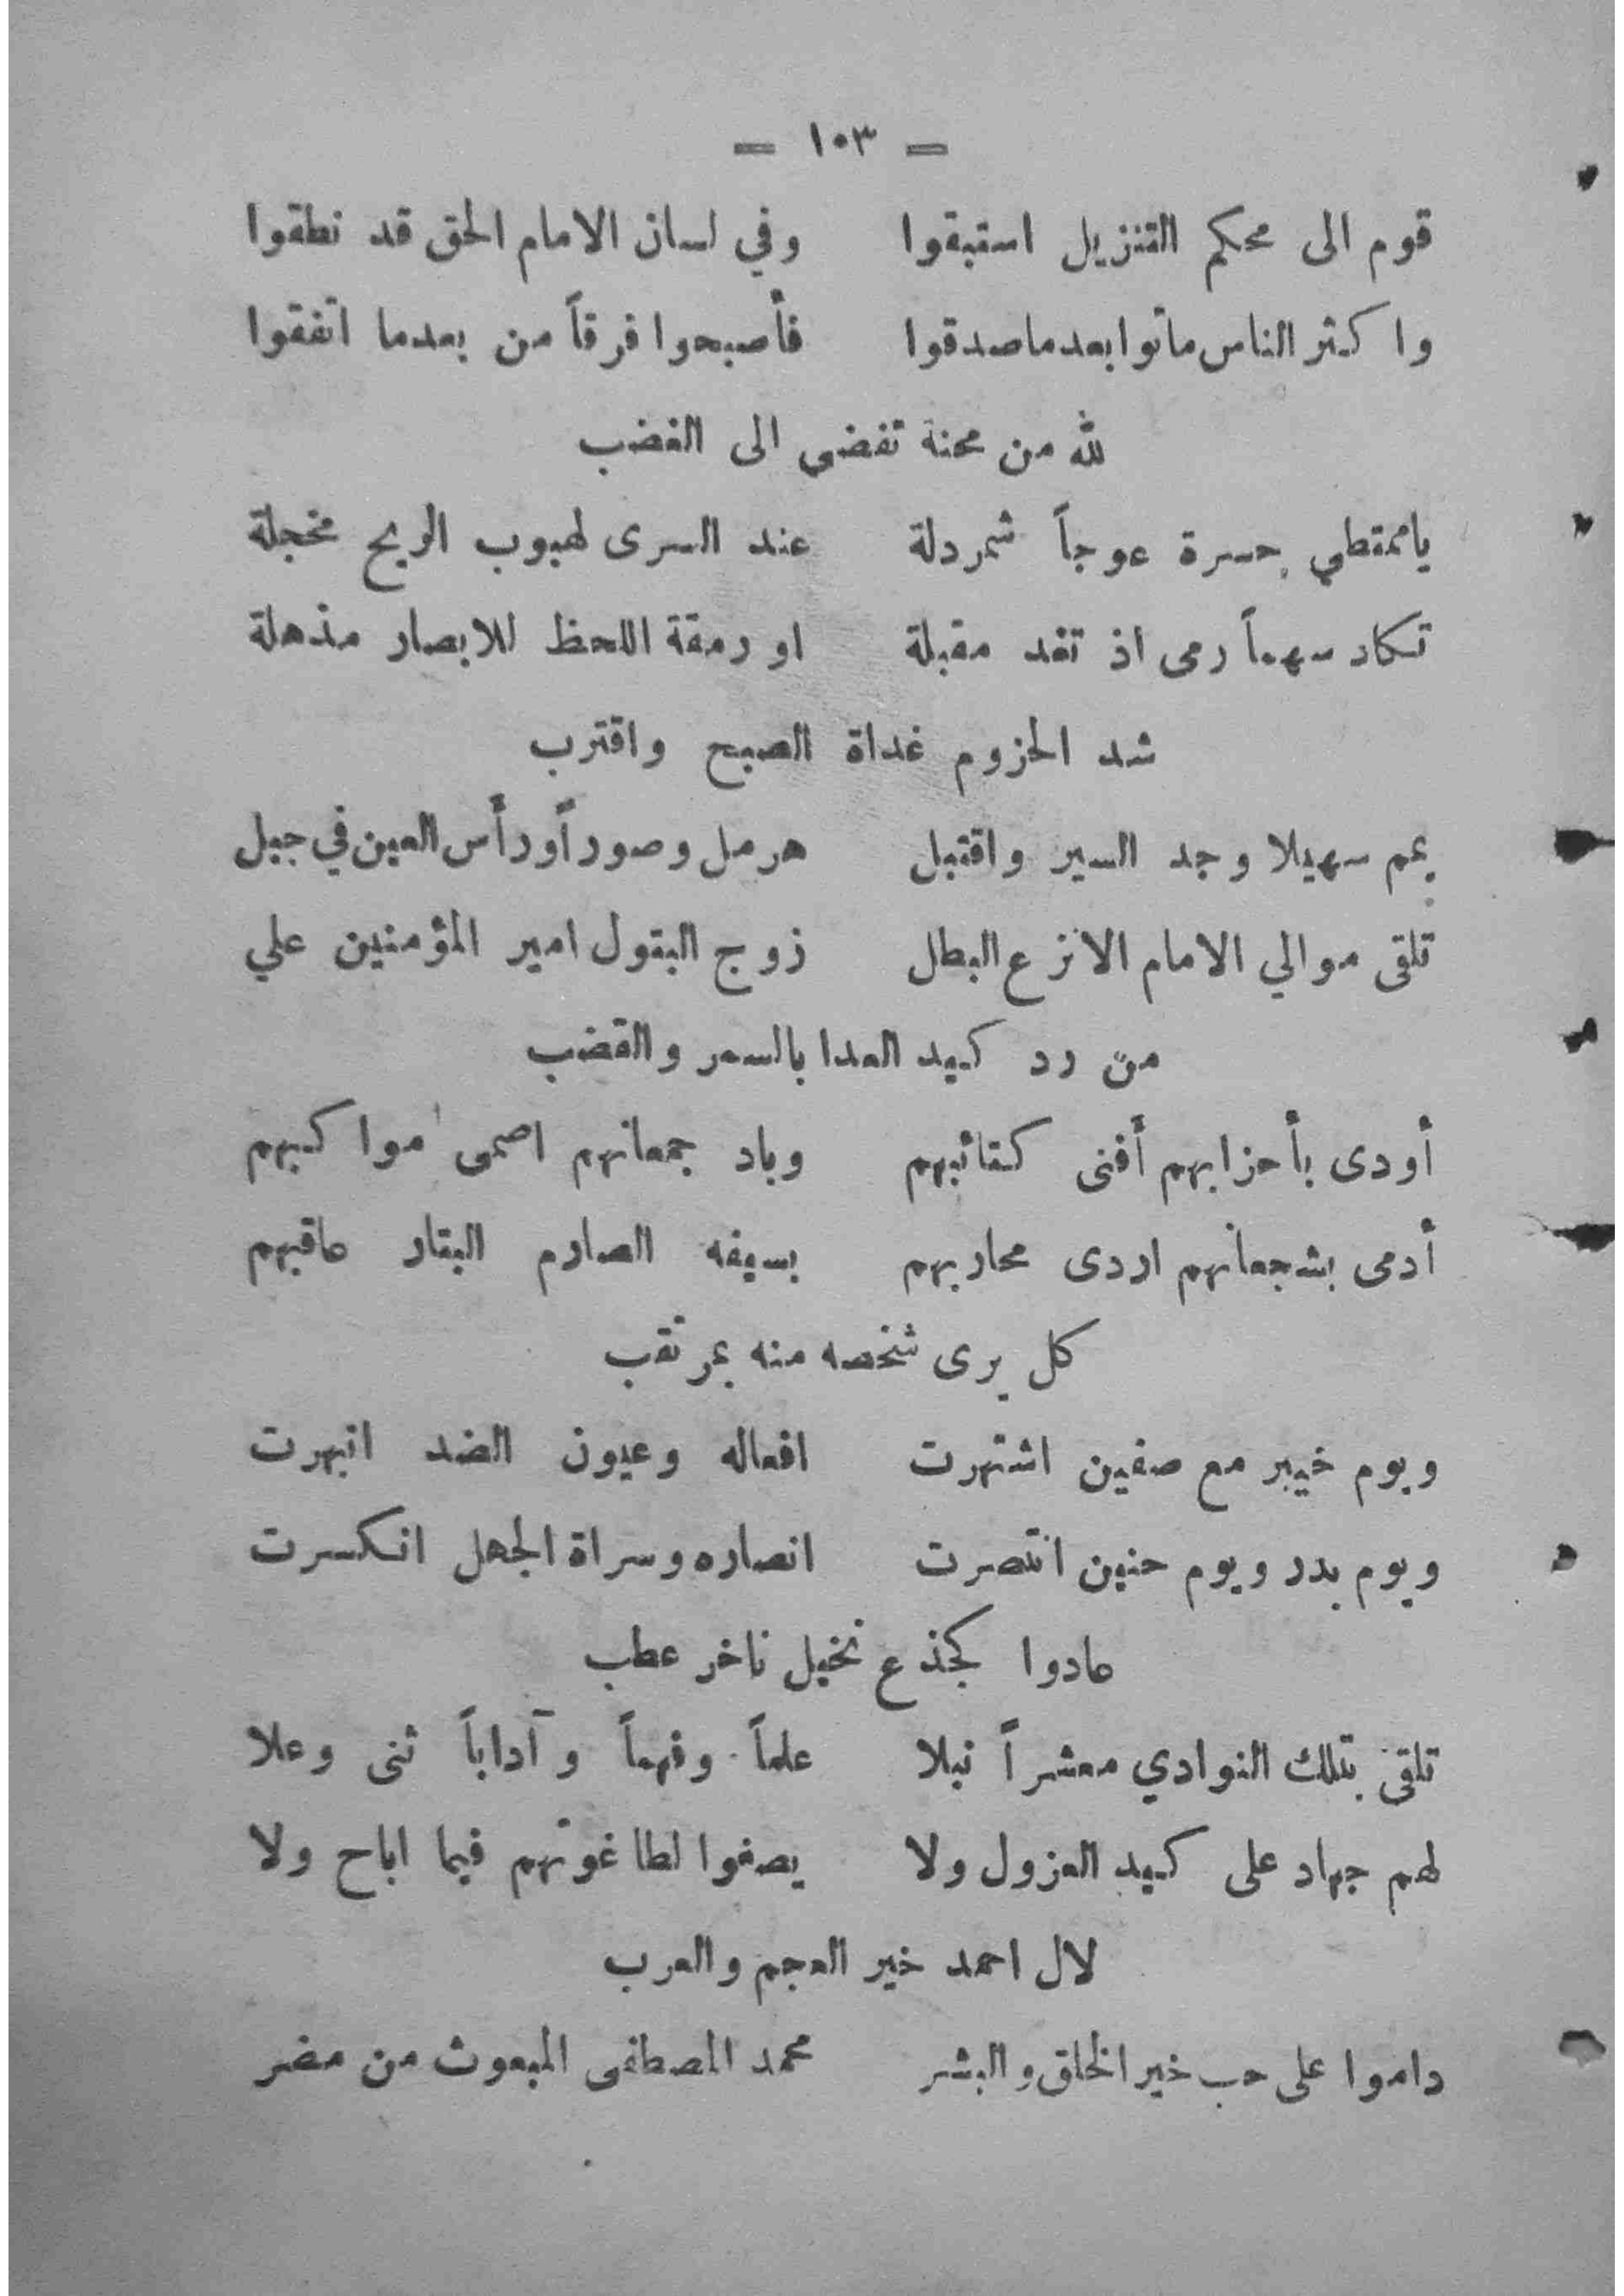 — ١٠٣ —
قوم الى محكم التنزيل استبقوا وفي لسان الامام الحق قد نطقوا
واكثر الناس ماتوا بعد ما صدقوا فأصبحوا فرقاً من بعدما اتفقوا
لله من محنة تفضى الى الغضب
ياممتطي جسرة عوجاً شمردلة عند السرى لهبوب الريح مخجلة
تكاد سهماً رمى اذ تغد مقبلة او رمقة اللحظ للابصار مذهلة
شد الحزوم غداة الصبح واقترب
يمم سهيلا وجد السير واقتبل هرمل وصوراً ورأس العين في جبل
تلقى موالي الامام الانزع البطل زوج البتول امير المؤمنين علي
من رد كيد العدا بالسمر والقضب
أودى بأحزابهم أفنى كتائبهم وباد جمعانهم اصمى مواكبهم
أدمى بشجعانهم اردى محاربهم بسيفه الصارم البتار عاقبهم
كل يرى شخصه منه بمرتقب
ويوم خيبر مع صفين اشتهرت افعاله وعيون الضد انبهرت
ويوم بدر ويوم حنين انتصرت انصاره وسراة الجهل انكسرت
عادوا كجذع نخيل ناخر عطب
تلقى بتلك النوادي معشراً نبلا علماً وفهماً وآداباً ثنى وعلا
لهم جهاد على كيد العزول ولا يصغوا لطاغوتهم فيما اباح ولا
لال احمد خير العجم والعرب
داموا على حب خير الخلق والبشر محمد المصطفى المبعوث من مضر